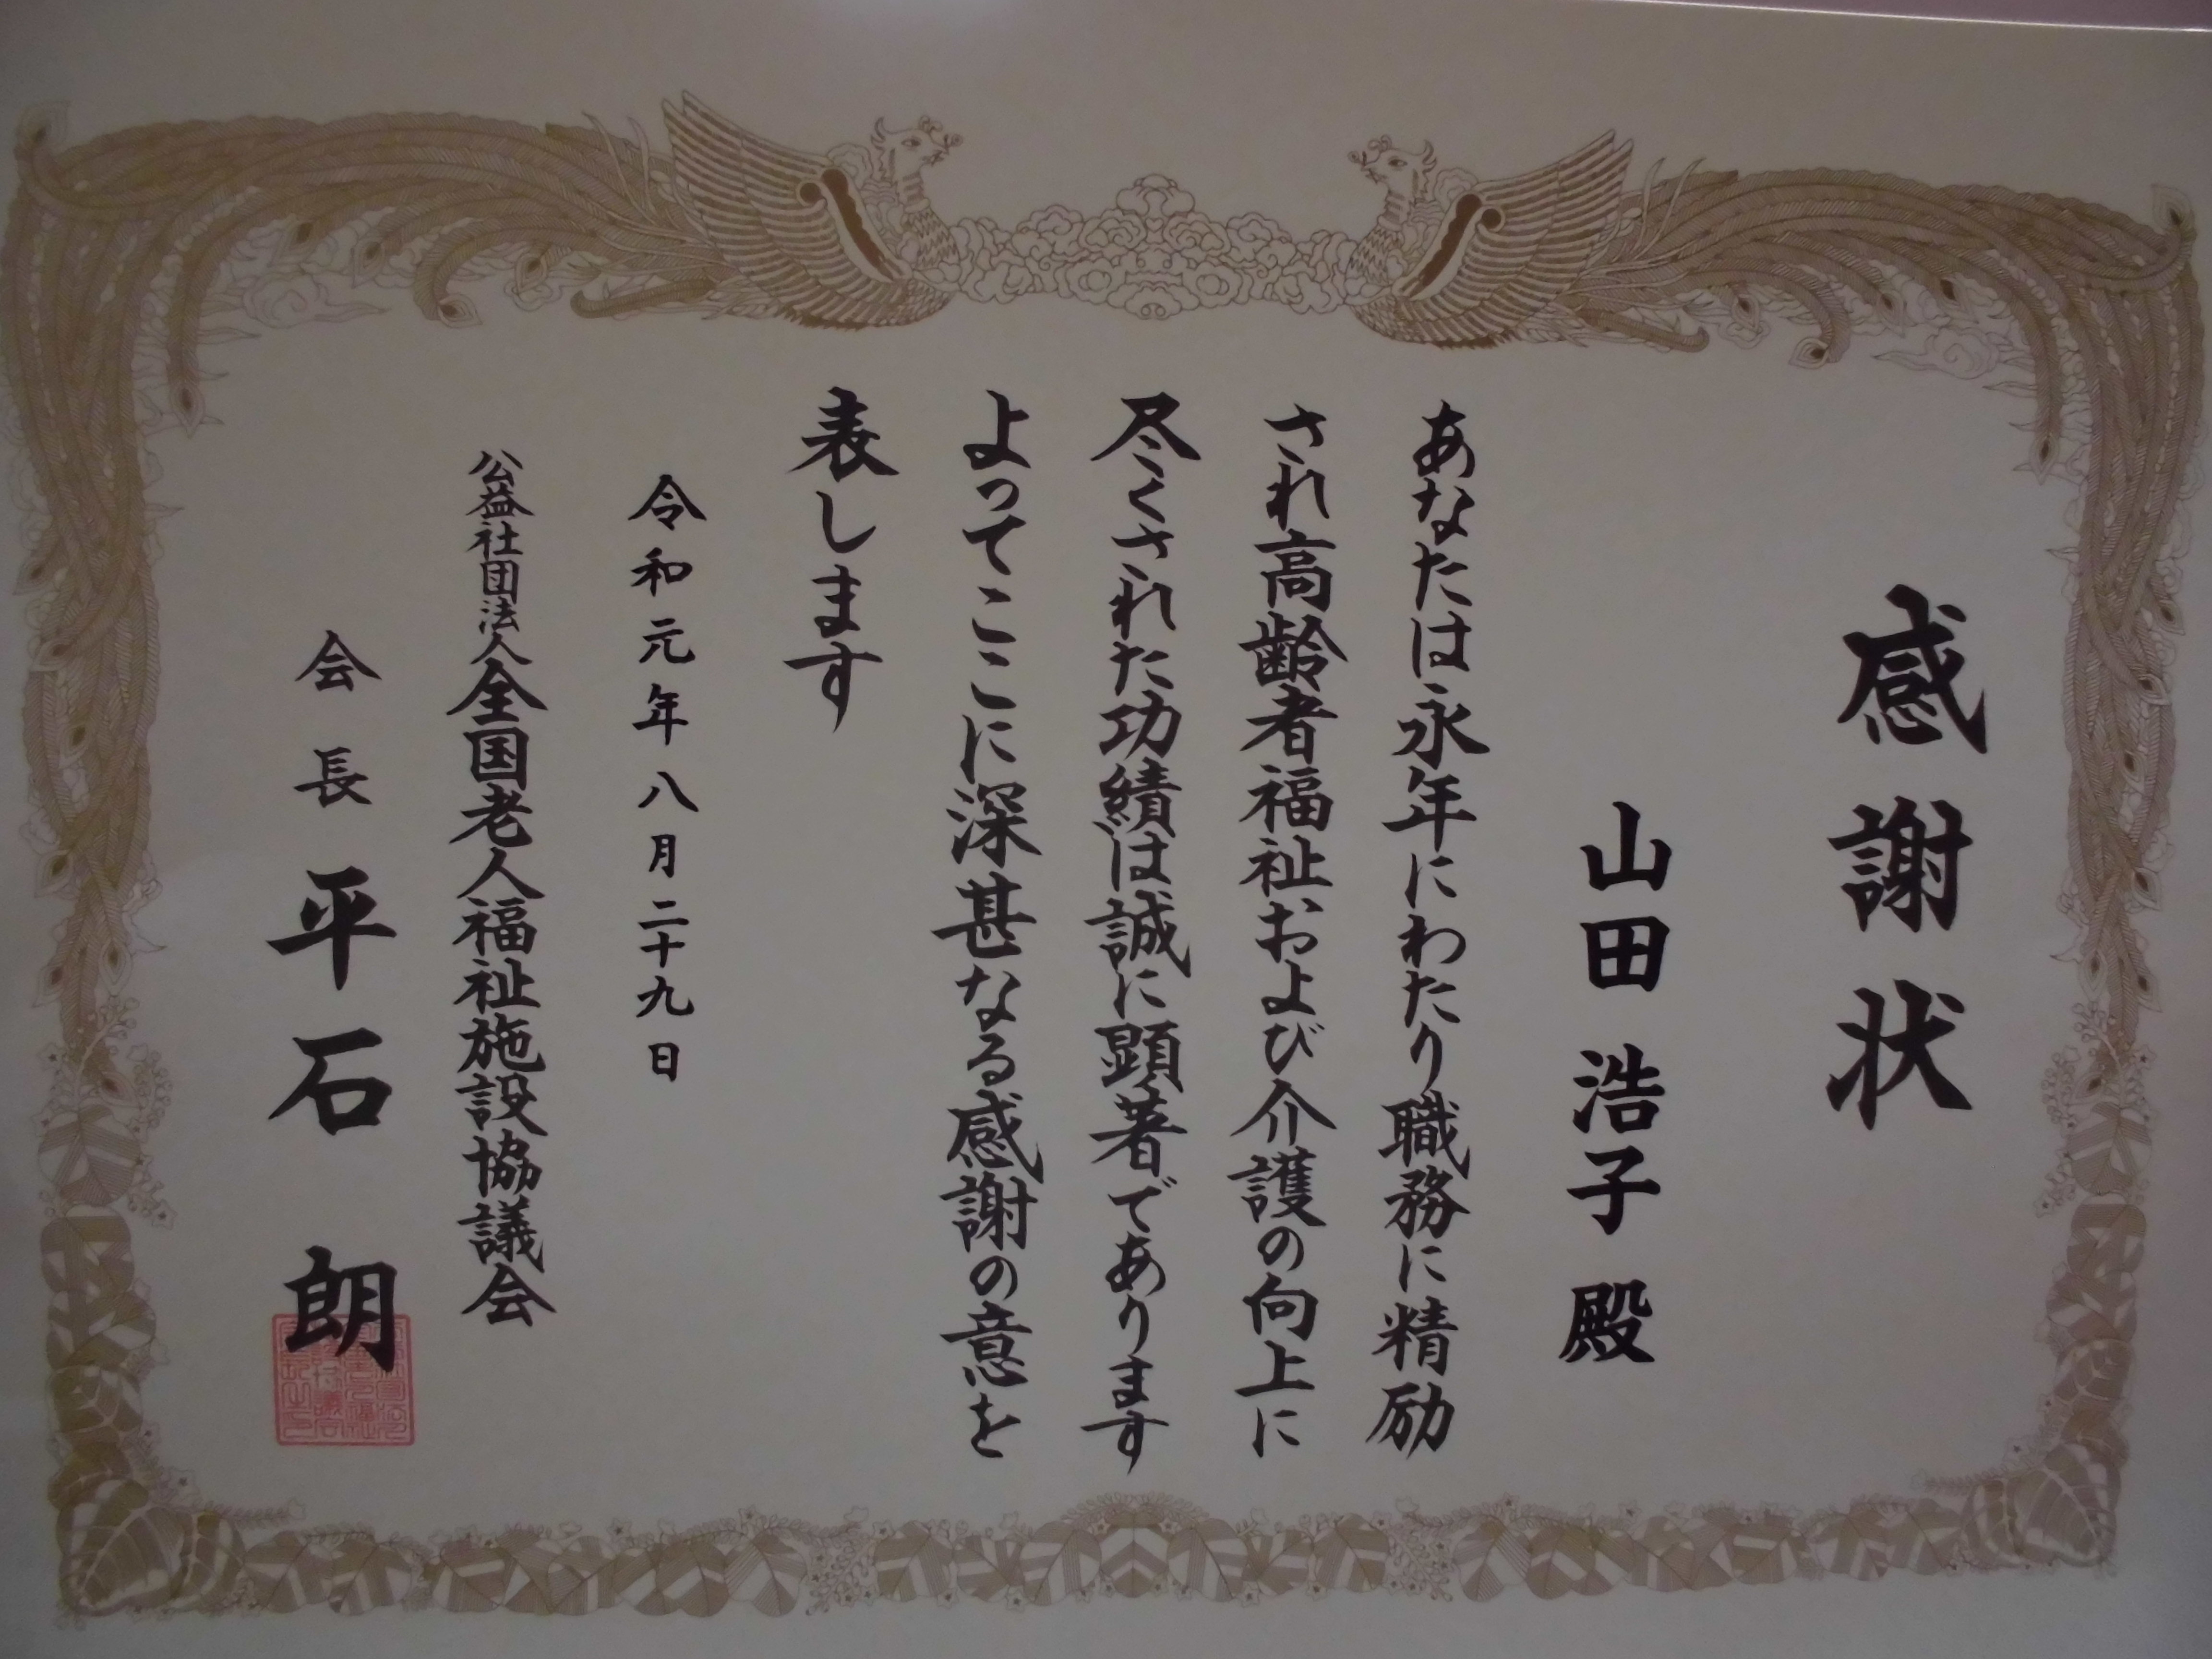 感謝状
山田 浩子 殿
あなたは永年にわたり職務に精励
され高齢者福祉および介護の向上に
尽くされた功績は誠に顕著であります
よってここに深甚なる感謝の意を
表します
令和元年八月二十九日
公益社団法人全国老人福祉施設協議会
会長 平石 朗